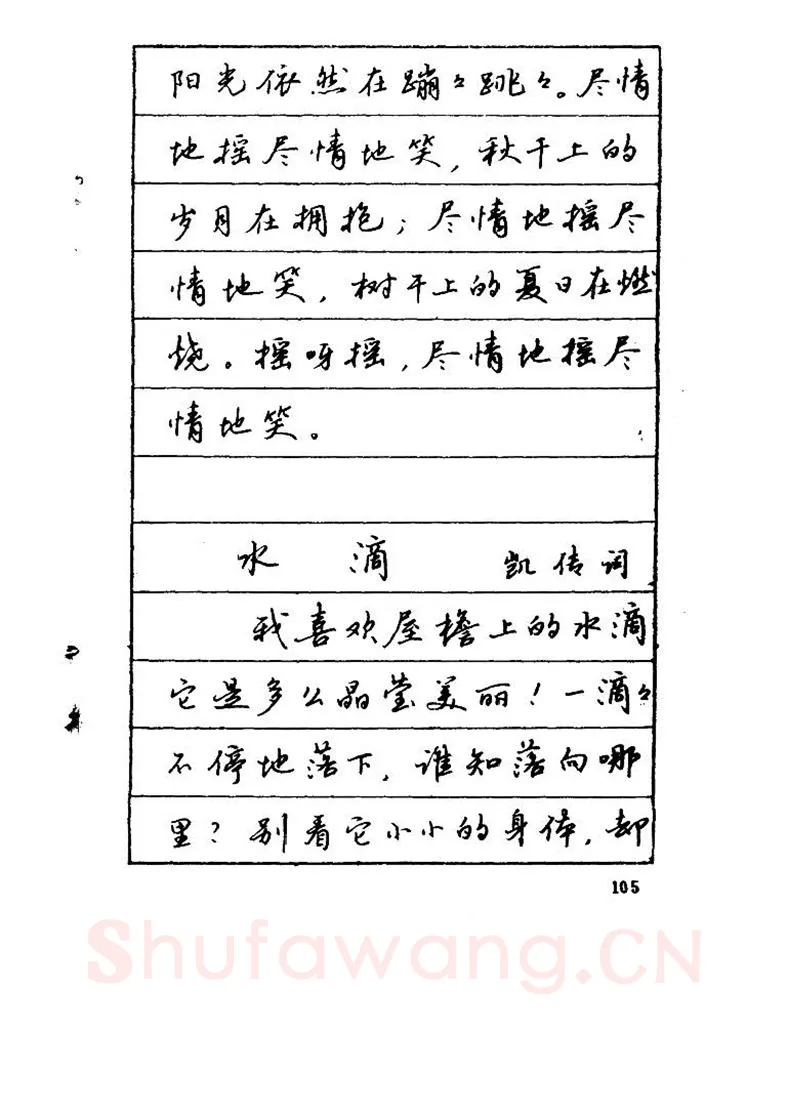 阳光依然在蹦々跳々。尽情
地摇尽情地笑，秋千上的
岁月在拥抱；尽情地摇尽
情地笑，树干上的夏日在燃
烧。摇呀摇，尽情地摇尽
情地笑。
水 滴 凯传词
我喜欢屋檐上的水滴
它是多么晶莹美丽！一滴々
不停地落下，谁知落向哪
里？别看它小小的身体，却
105
Shufawang.CN